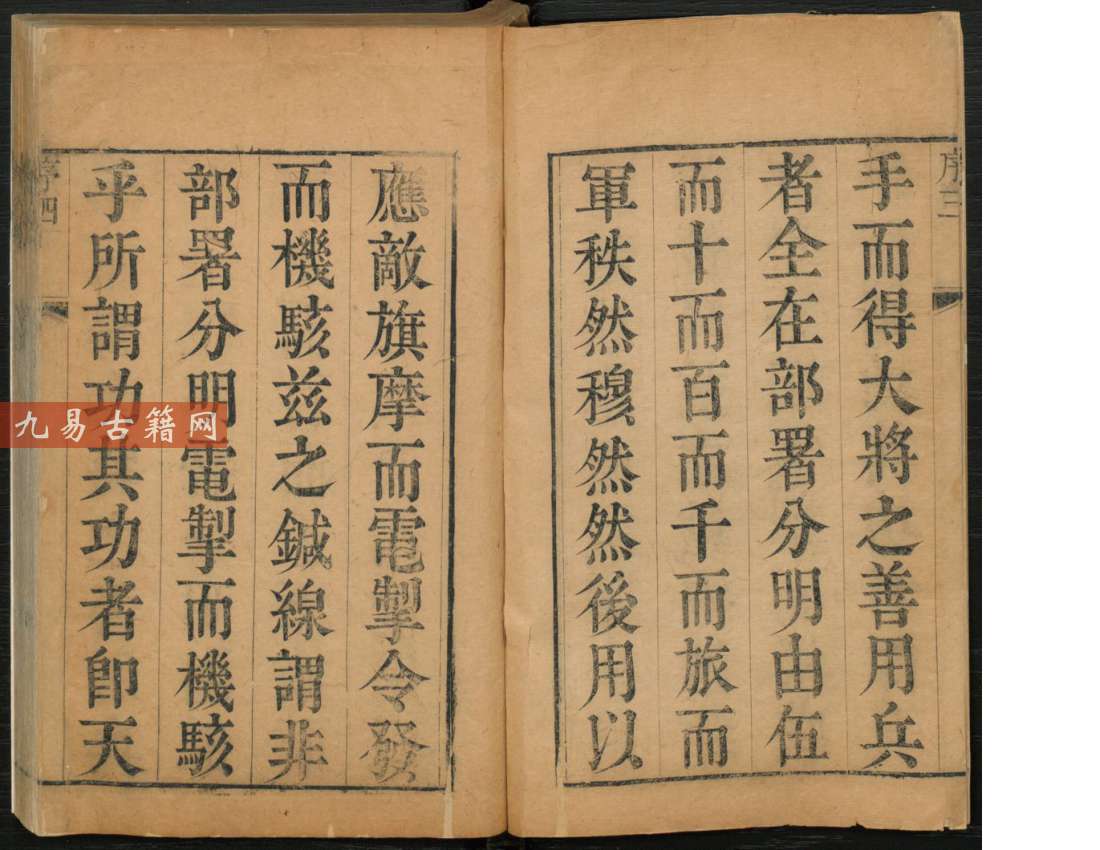 序三
手而得大將之善用兵
者全在部署分明由伍
而十而百而千而旅而
軍秩然穆然然後用以
應敵旗摩而電掣令發
而機駭茲之鍼線謂非
部署分明電掣而機駭
乎所謂功其功者卽天
序四
九易古籍网